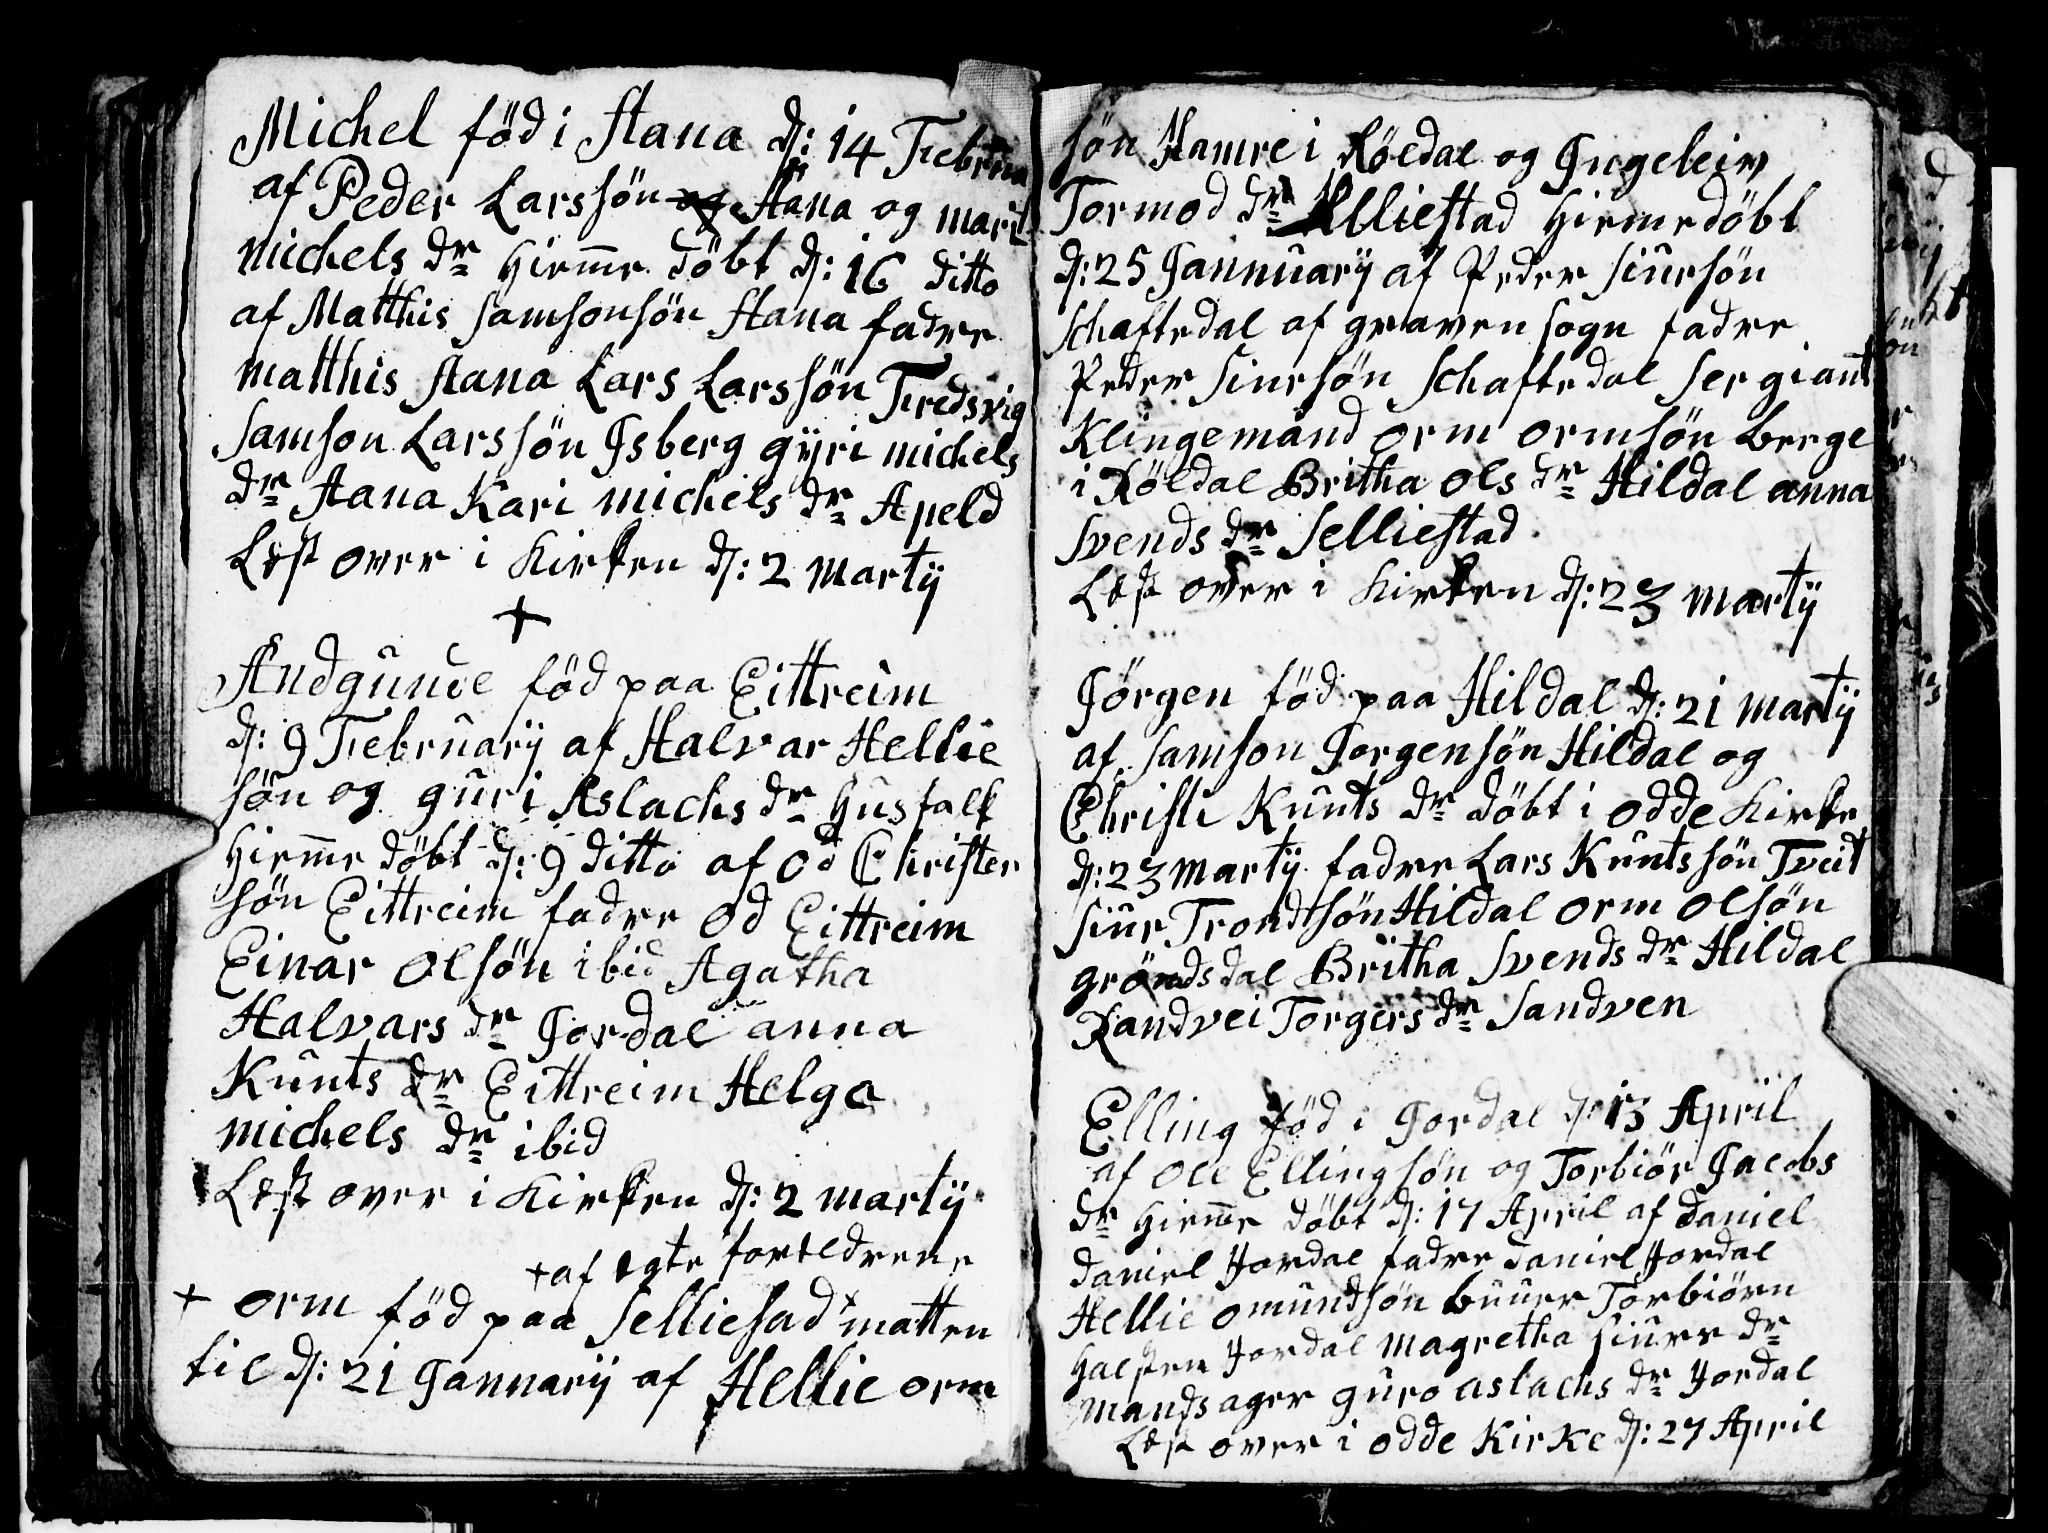 Michel föd i Aana d: 14 Februar
af Peder Larssön og Aana og marit
michels dr hiemme döbt d: 16 ditto
af Matthis Samsonsön Aana fadre
matthis Aana Lars Larssön Fredsvig
Samson Larssön Isberg gÿri michels
dr Aana Kari michels dr Apeld
Læst over i Kirken d: 2 martÿ
+
Andgunde föd paa Eittreim
d: 9 Februarÿ af Halvar Hellie
sön og guri Aslachs dr Husfalk
hiemme döbt d: 9 ditto af Od Christen
sön Eittreim fadre Od Eittreim
Einar Olsön ibid Agatha
Halvars dr Jordal anna
Kunts dr Eittreim Helga
michels dr ibid
Læst over i Kirken d: 2 martÿ
+ af egte forældrene
+ orm föd paa Selliesad + matten
til d: 21 Januarÿ af Hellie orm
sön Hamre i Röldal og Ingeleiv
Tormod dr Selliestad hiemedöbt
d: 25 Jannuarÿ af Peder Siursön
Schaftedal af graven sogn fadre
Peder Siursön Schaftedal Sergiant
Klingemand orm ormsön berge
i Röldal Britha ols dr Hildal anna
Svends dr Selliestad
Læst over i Kirken d: 23 martÿ
Jörgen föd paa Hildal d: 21 martÿ
af Samson Jorgensön Hildal og
Christi Kunts dr döbt i odde Kirke
d: 23 martÿ fadre Lars Kuntssön Tveit
Siur Trondsön Hildal orm olsön
gröndsdal Britha Svends dr Hildal
Randvei Torgers dr Sandven
Elling föd i Jordal d: 13 April
af ole Ellingsön og Torbiör Jacobs
dr hiemme döbt d: 17 April af daniel
daniel Jordal fadre daniel Jordal
Hellie omundsön buuer Torbiörn
halsten Jordal magretha Siurs dr
mandsager guro aslachs dr Jordal
Læst over i odde Kirke d: 27 April